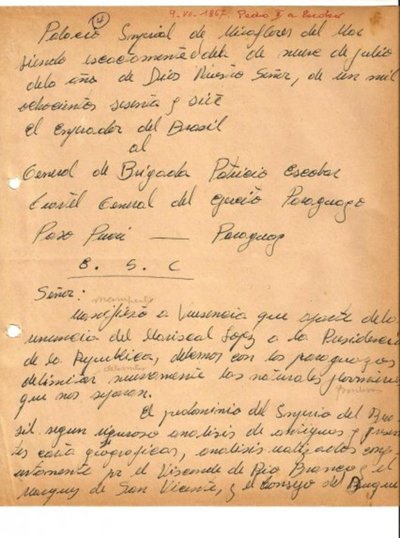 4
9-VII-1867. Pedro II a Escobar
Palacio Imperial de Miraflores del Mar
siendo exactamente del de nueve de julio
del año de Dios Nuestro Señor, de un mil
ochocientos sesenta y siete
El Emperador del Brasil
al
General de Brigada Patricio Escobar
Cuartel General del Ejercito Paraguayo
Paso Pucú — Paraguay
B. S. C
Señor:
manifiesto
Manifiesto a Vuesencia que aparte de la
renuncia del Mariscal Lopez a la Presidencia
de la Republica, debemos con los paraguayos
delimitar
delimitar nuevamente las naturales fronteras
fronteras
que nos separan.
El predominio del Imperio del Bra
sil segun riguroso analisis de antiguas y presen
tes cartas geograficas, analisis realizados conj
untamente por el Visconde de Rio Branco y el
marques de San Vicente, y el Consejo de